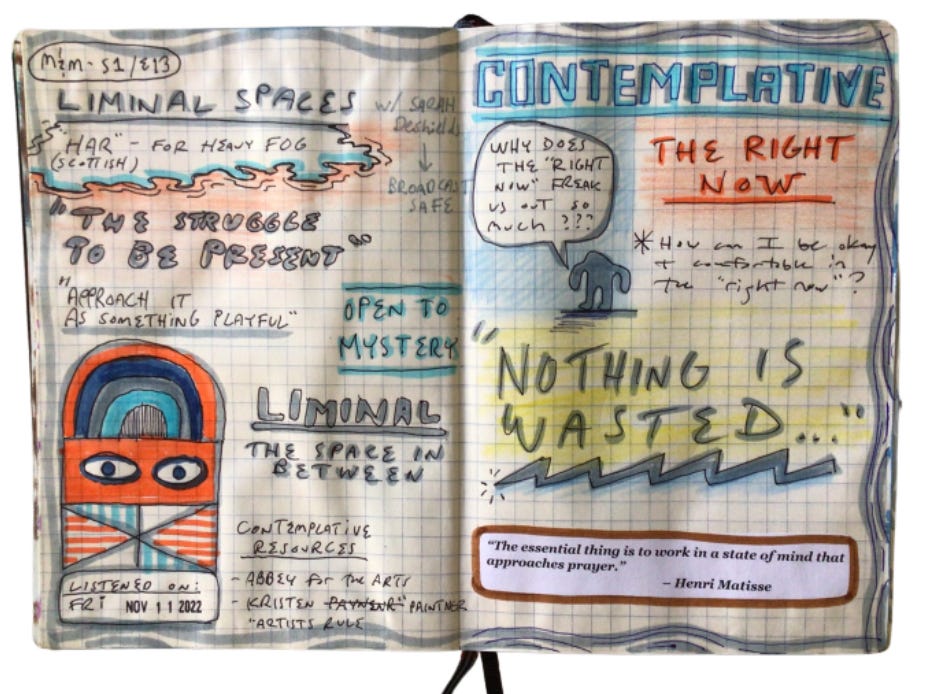 M&M - S1/E13
LIMINAL SPACES
w/ SARAH
Deshields
BROADCAST
SAFE
"HAR" - FOR HEAVY FOG
(SCOTTISH)
"THE STRUGGLE
TO BE PRESENT"
"APPROACH IT
AS SOMETHING PLAYFUL"
OPEN TO
MYSTERY
LIMINAL
THE SPACE IN
BETWEEN
CONTEMPLATIVE
RESOURCES
- ABBEY for the ARTS
- KRISTEN PAYNENR" PAINTNER
"ARTISTS RULE
LISTENED ON:
FRI NOV 11 2022
CONTEMPLATIVE
WHY DOES
THE "RIGHT
NOW" FREAK
US OUT SO
much ???
THE RIGHT
NOW
* How can I be okay
+ comfortable in
the "right now"?
"NOTHING IS
WASTED..."
"The essential thing is to work in a state of mind that
approaches prayer."
– Henri Matisse